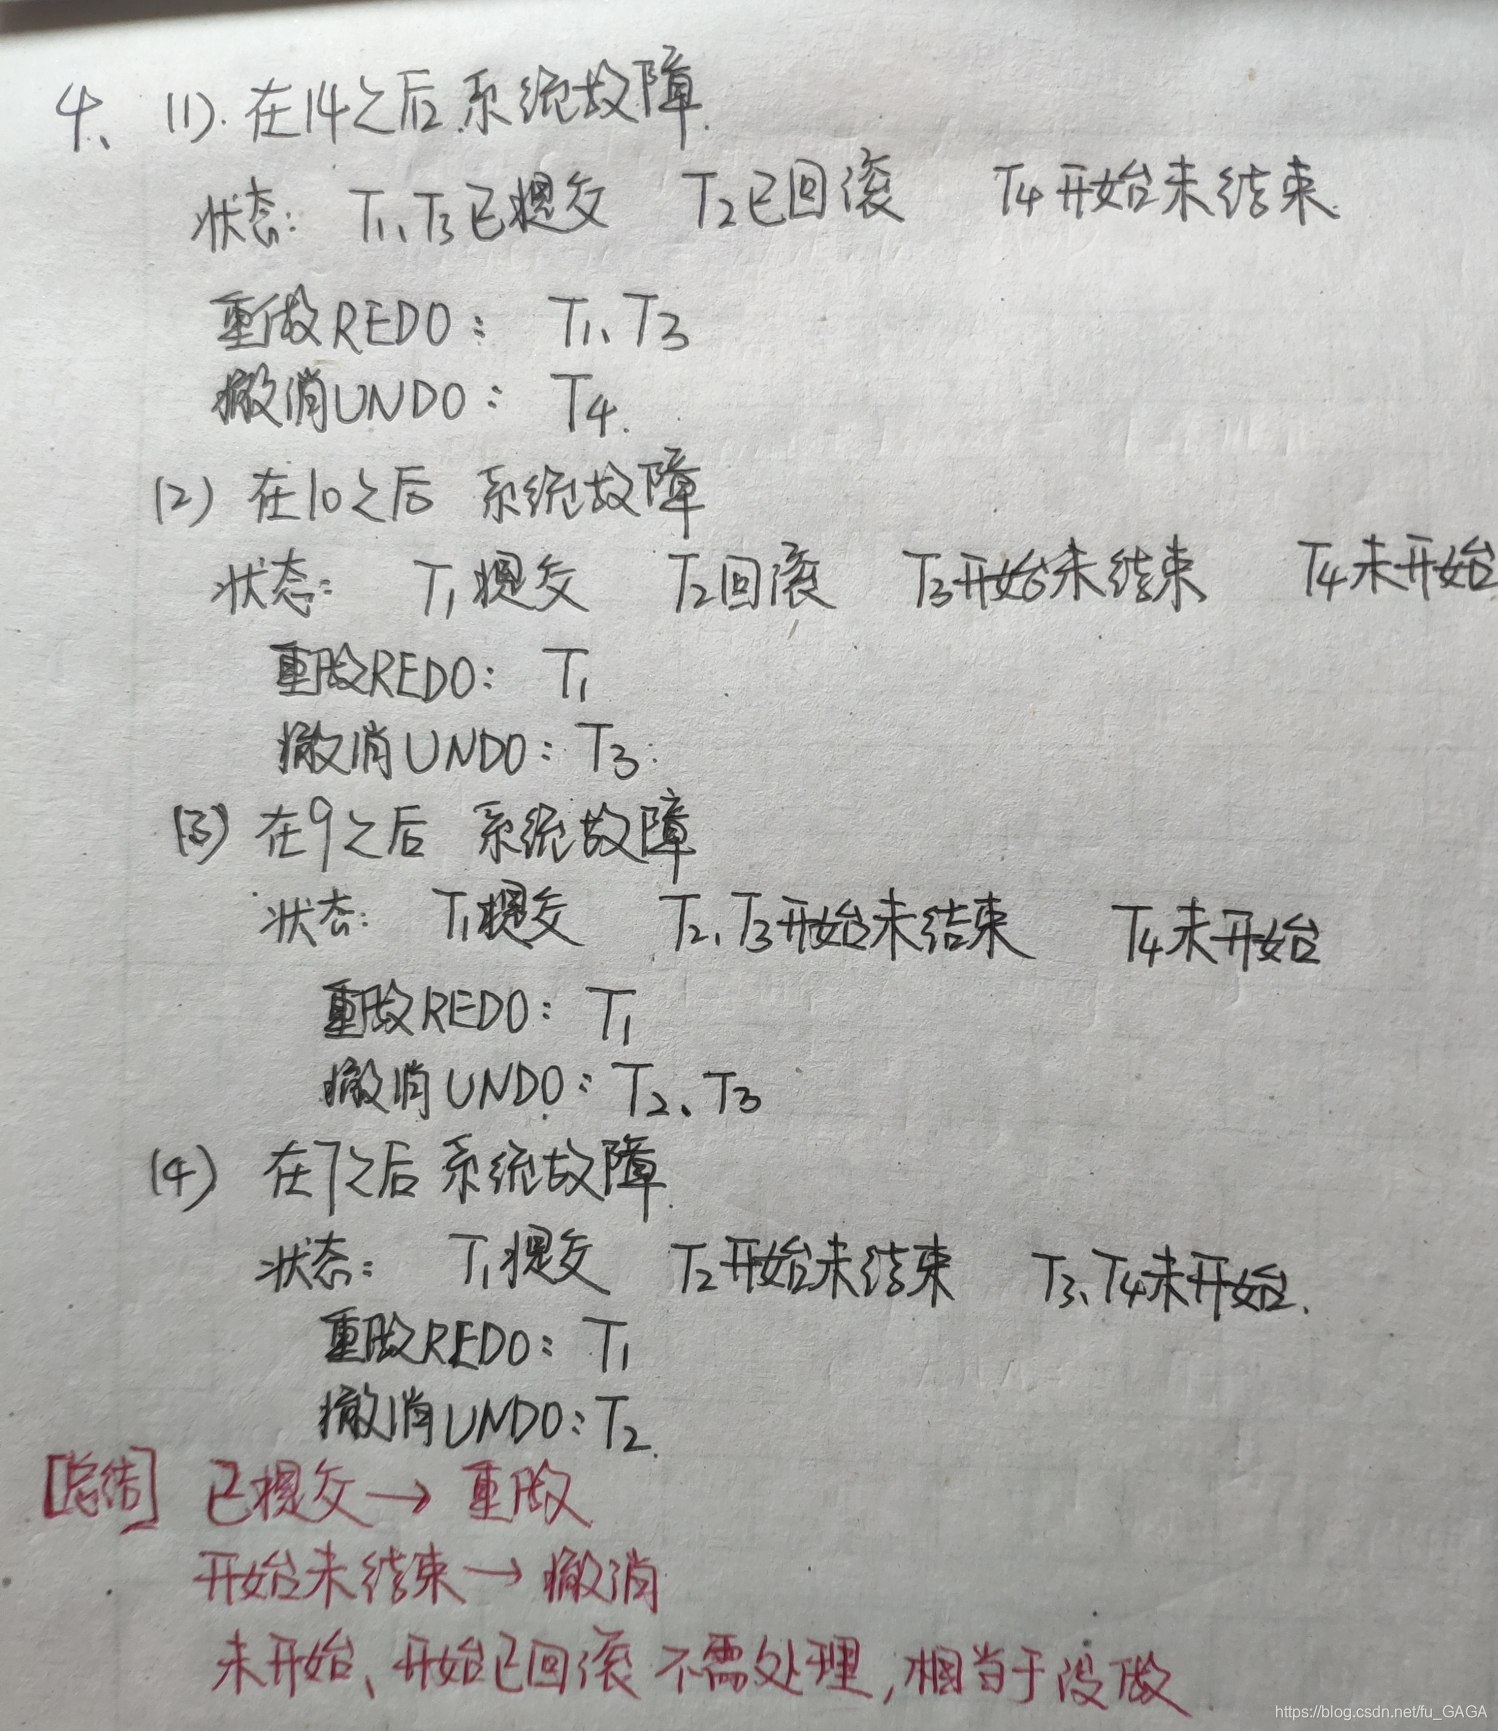 4、(1).在14之后系统故障.
状态: T1、T3已提交 T2已回滚 T4开始未结束.
重做REDO: T1、T3
撤消UNDO: T4.
(2) 在10之后 系统故障
状态: T1提交 T2回滚 T3开始未结束 T4未开始
重做REDO: T1
撤消UNDO: T3.
(3) 在9之后 系统故障
状态: T1提交 T2、T3开始未结束 T4未开始
重做REDO: T1
撤消UNDO: T2、T3
(4) 在7之后 系统故障.
状态: T1提交 T2开始未结束 T3、T4未开始.
重做REDO: T1
撤消UNDO: T2.
[总结] 已提交→重做
开始未结束→撤消
未开始、开始已回滚 不需处理,相当于没做
https://blog.csdn.net/fu_GAGA